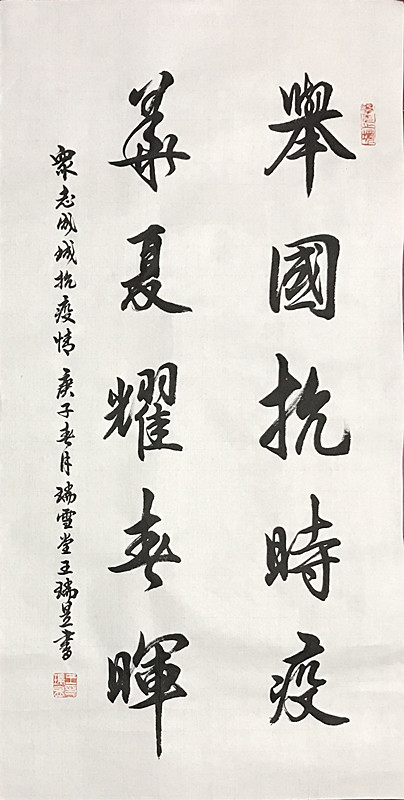 舉國抗時疫
華夏耀春暉
衆志成城抗疫情 庚子春月瑞雪堂王瑞昱書